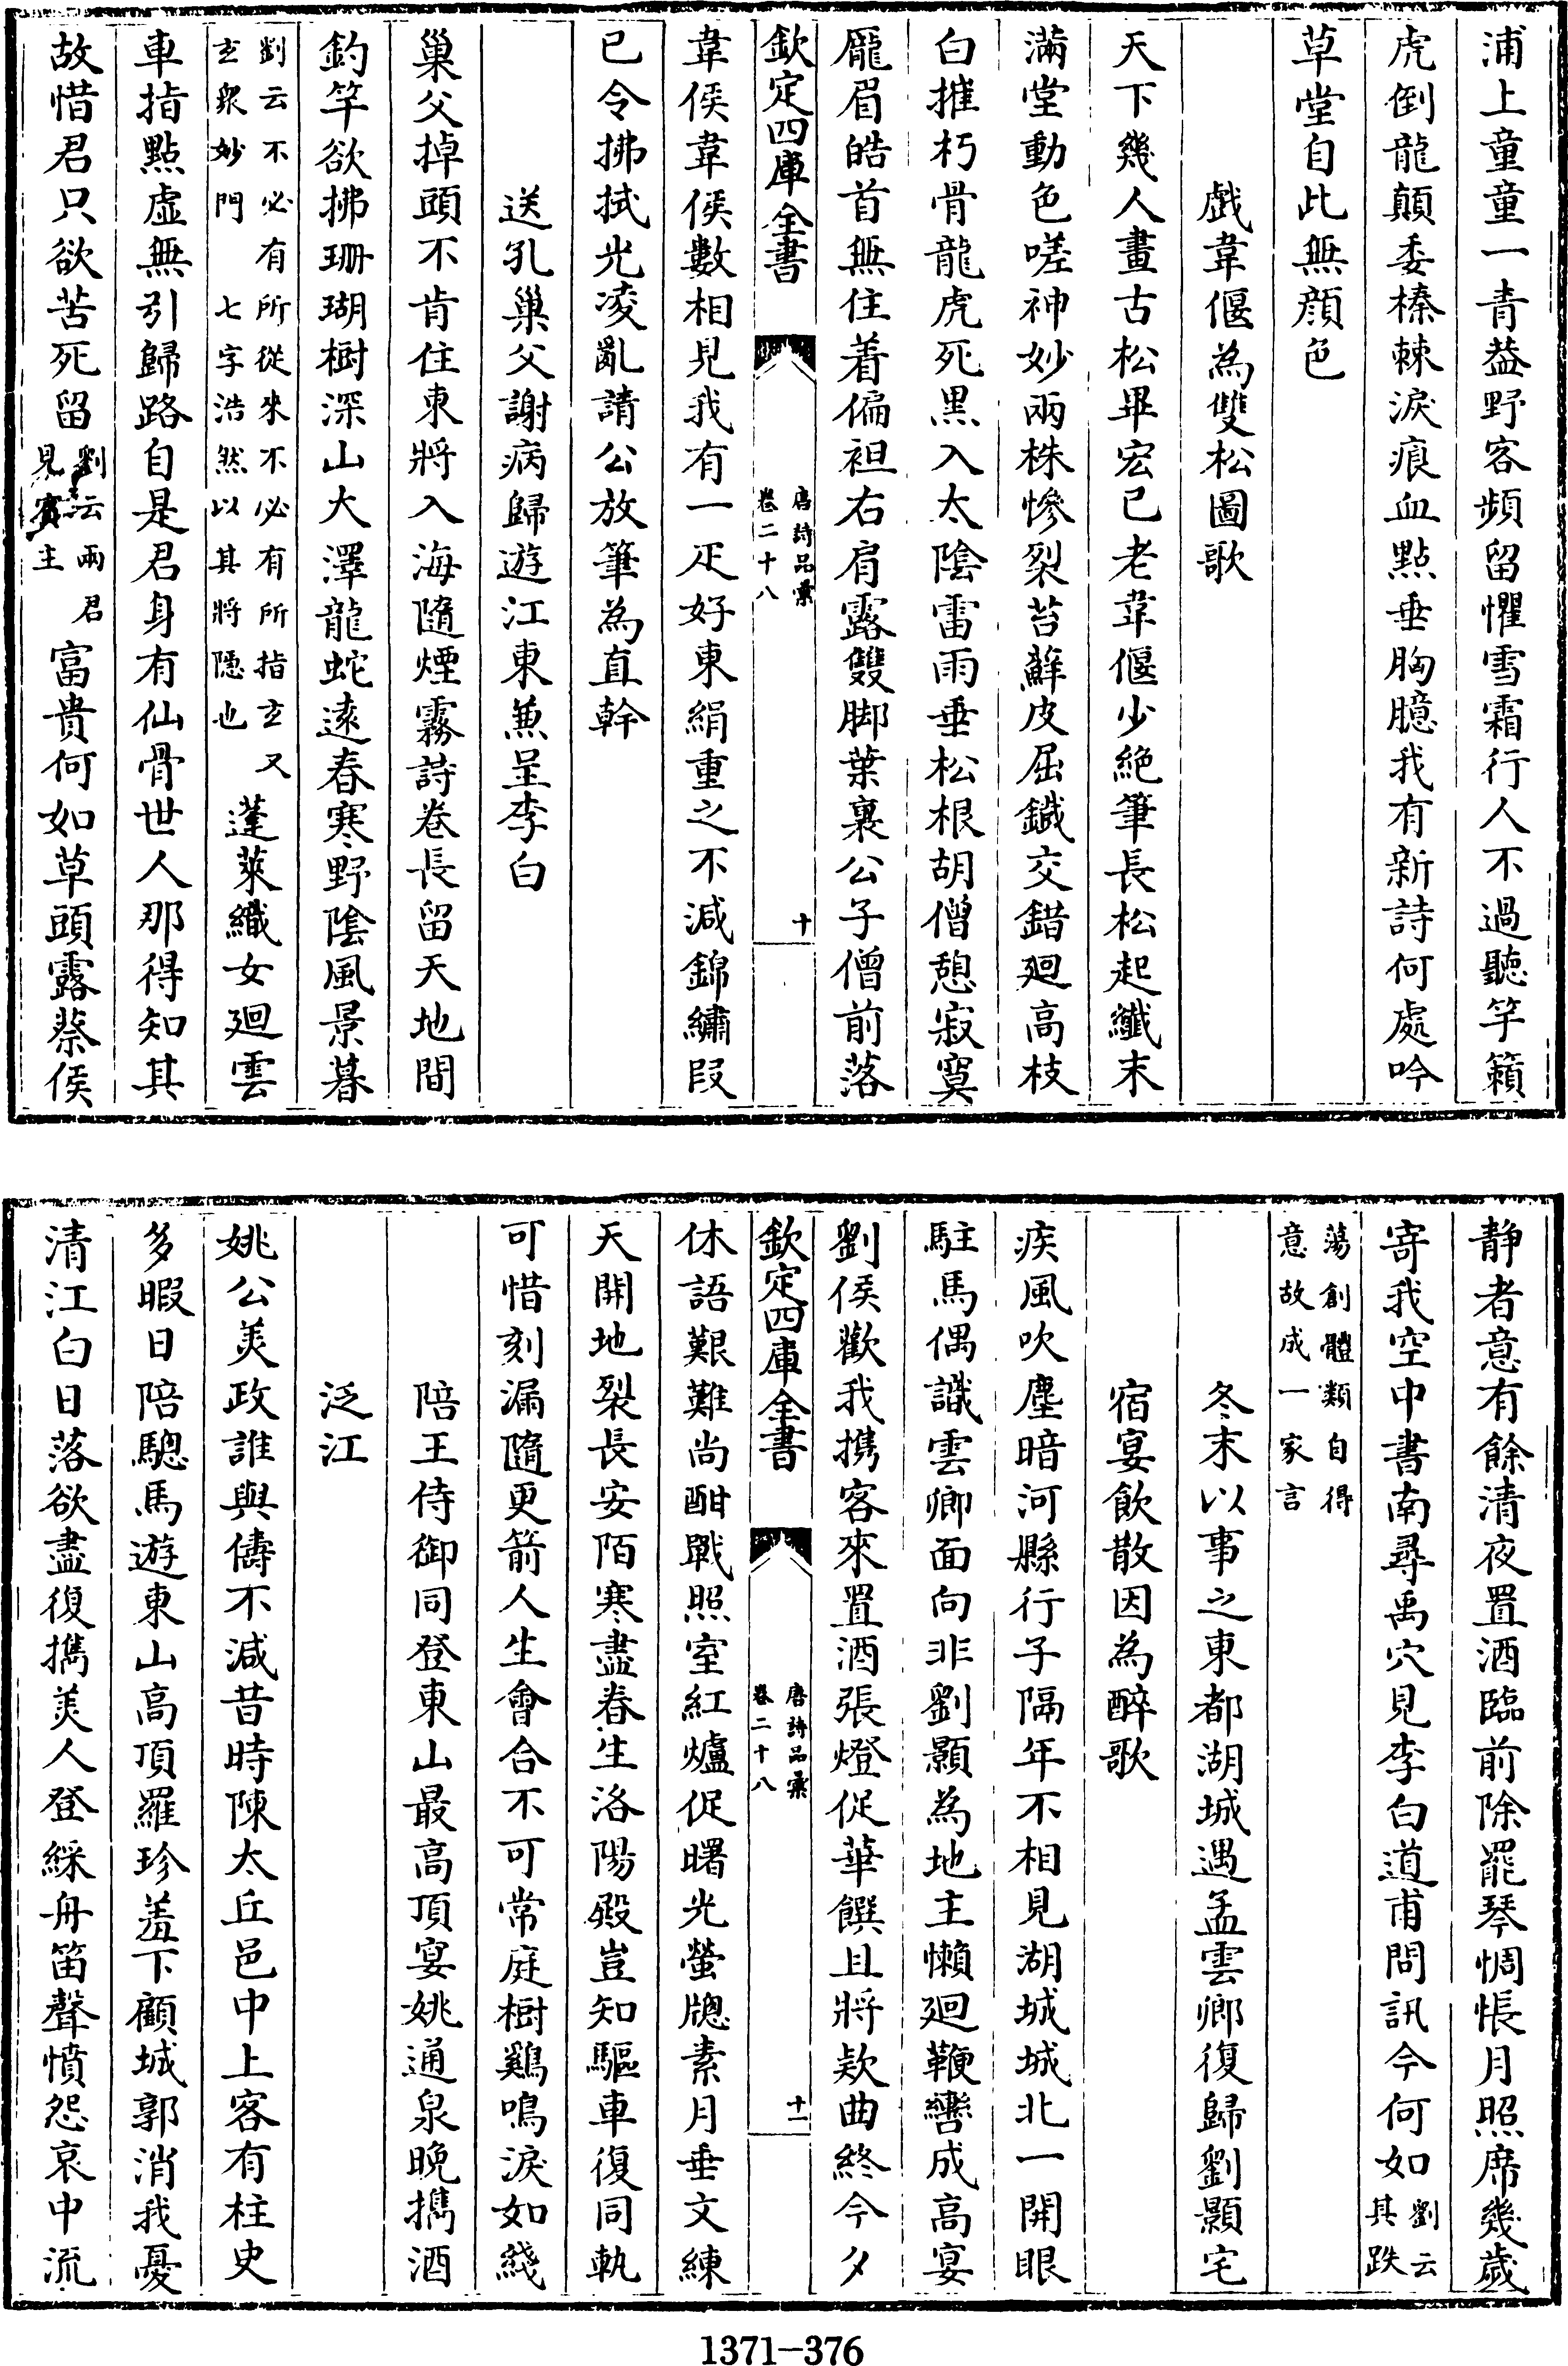 浦上童童一青葢野客頻留懼雪霜行人不過聽竽籟
虎倒龍顛委榛棘淚痕血點垂胸臆我有新詩何處吟
草堂自此無顔色
戲韋偃為雙松圖歌
天下幾人畫古松畢宏已老韋偃少絶筆長松起纖末
滿堂動色嗟神妙兩株慘裂苔蘚皮屈鐵交錯廻高枝
白摧朽骨龍虎死黒入太陰雷雨垂松根胡僧憩寂寞
龎眉皓首無住着偏袒右肩露雙脚葉裏公子僧前落
欽定四庫全書
唐詩品彚
卷二十八
十
韋侯韋侯數相見我有一疋好東絹重之不減錦繡段
已令拂拭光凌亂請公放筆為直幹
送孔巢父謝病歸遊江東兼呈李白
巢父掉頭不肯住東將入海隨煙霧詩卷長留天地間
釣竿欲拂珊瑚樹深山大澤龍蛇逺春寒野陰風景暮
劉云不必有所從來不必有所指玄又
玄衆妙門 七字浩然以其將隱也
蓬萊織女廻雲
車指點虛無引歸路自是君身有仙骨世人那得知其
故惜君只欲苦死留
劉云兩君
見賓主
富貴何如草頭露蔡侯
靜者意有餘清夜置酒臨前除罷琴惆悵月照席幾歲
寄我空中書南尋禹穴見李白道甫問訊今何如
劉云
其跌
蕩創體類自得
意故成一家言
冬末以事之東都湖城遇孟雲卿復歸劉顥宅
宿宴飲散因為醉歌
疾風吹塵暗河縣行子隔年不相見湖城城北一開眼
駐馬偶識雲卿面向非劉顥為地主懶廻鞭轡成高宴
劉侯歡我携客來置酒張燈促華饌且將欵曲終今夕
欽定四庫全書
唐詩品彚
卷二十八
十一
休語艱難尚酣戰照室紅爐促曙光螢牕素月垂文練
天開地裂長安陌寒盡春生洛陽殿豈知驅車復同軌
可惜刻漏隨更箭人生會合不可常庭樹鷄鳴淚如綫
陪王侍御同登東山最高頂宴姚通泉晚攜酒
泛江
姚公美政誰與儔不減昔時陳太丘邑中上客有柱史
多暇日陪驄馬遊東山高頂羅珍羞下顧城郭消我憂
清江白日落欲盡復攜美人登綵舟笛聲憤怨哀中流
1371-376